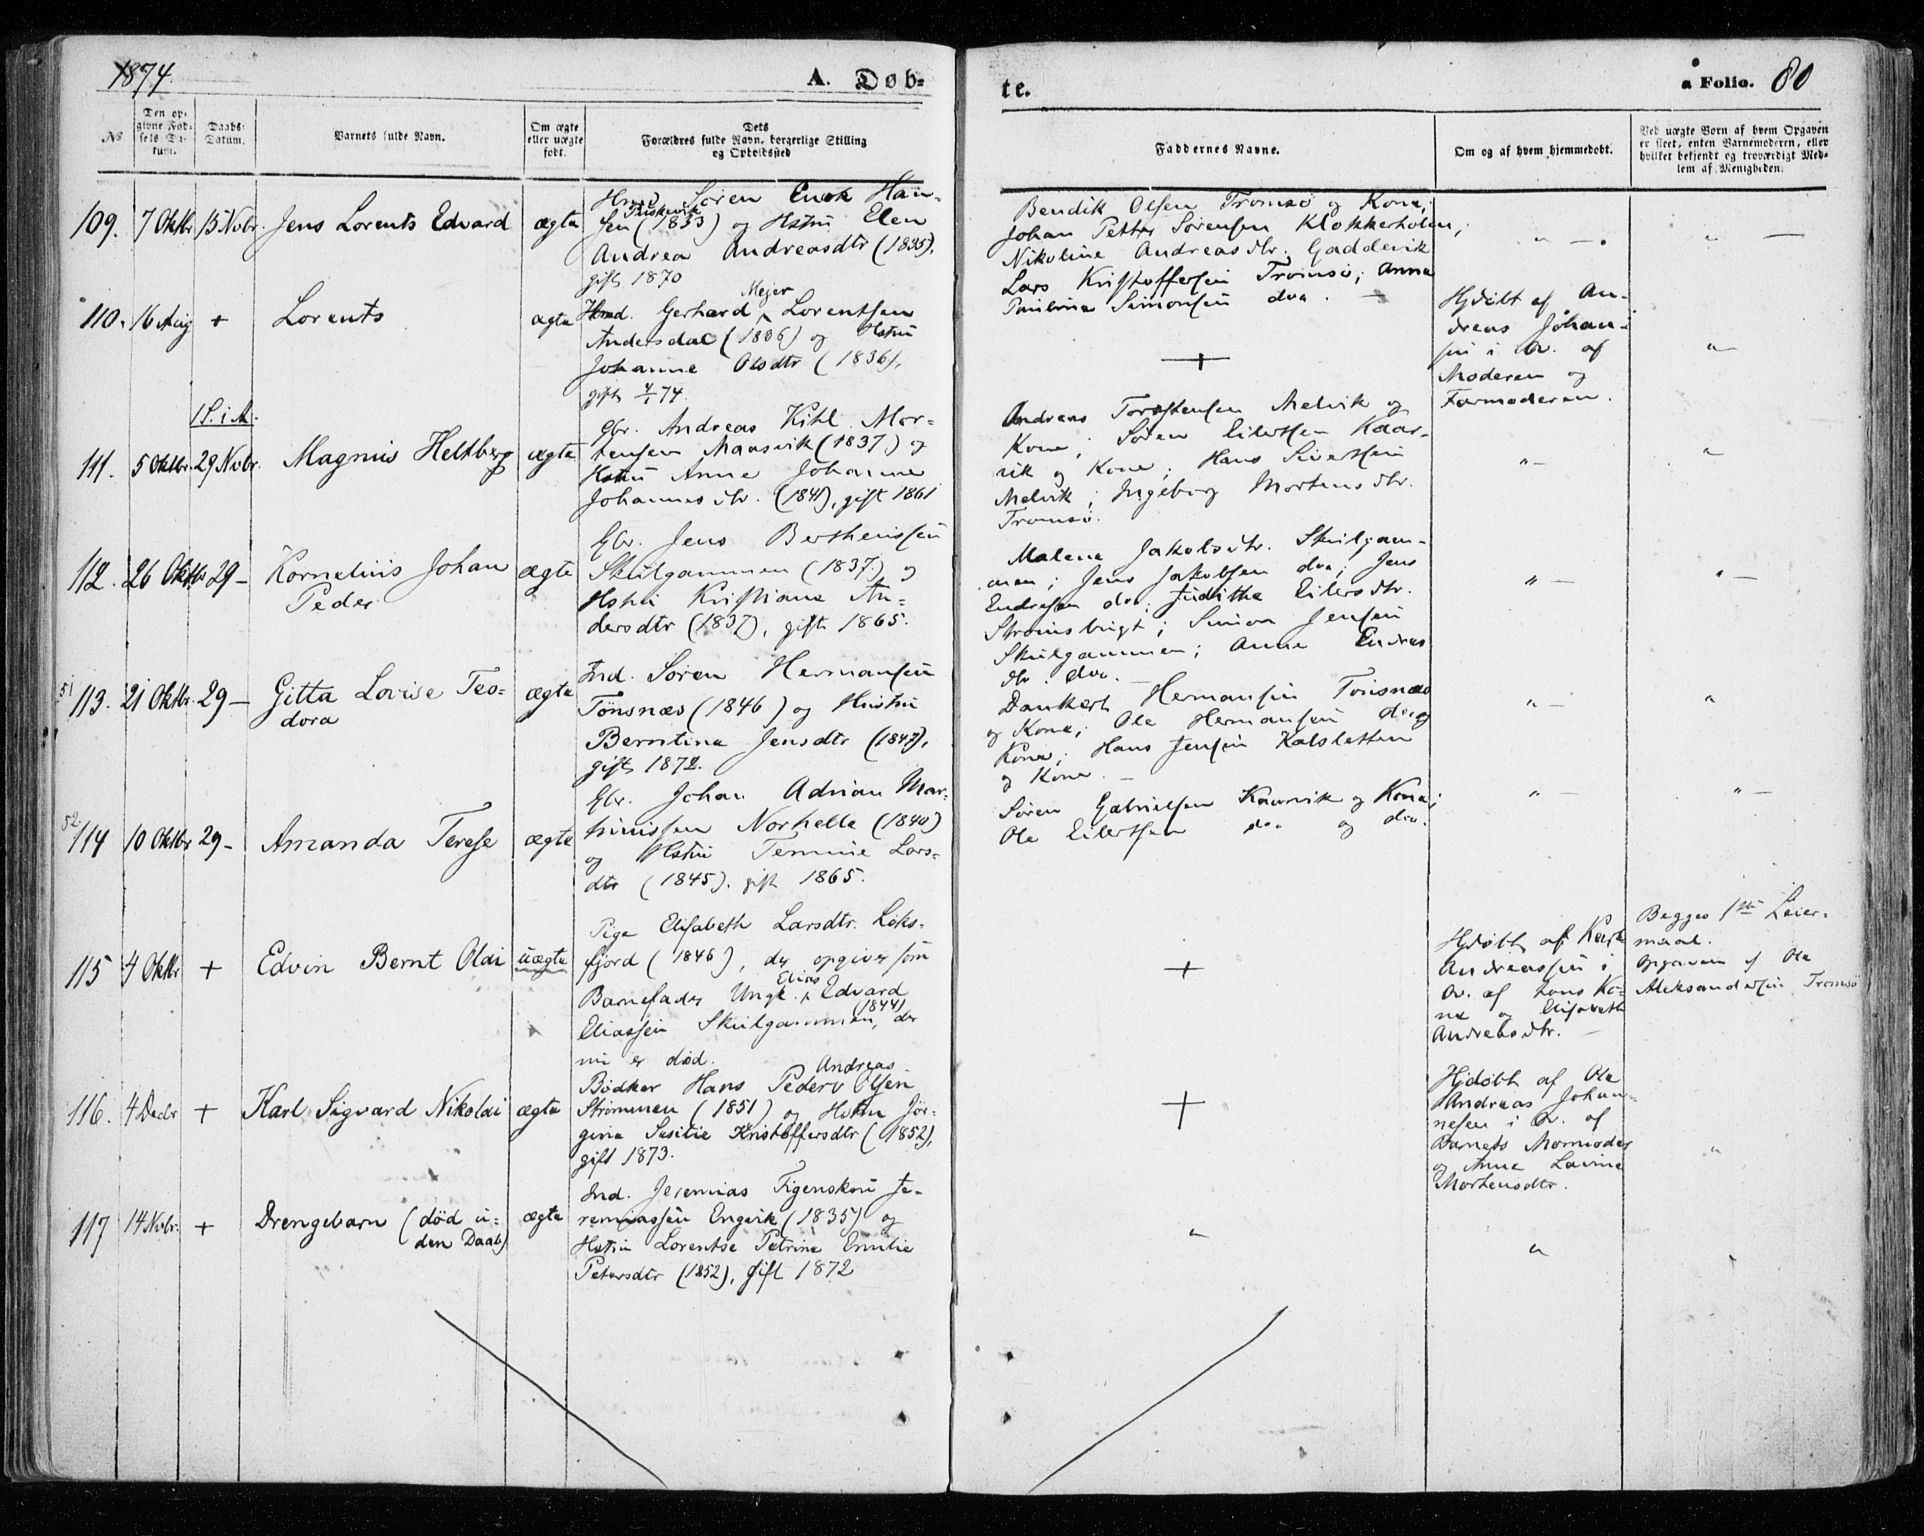 1874.
A. Døb-
te.
a Folio. 80
No
Den op-
givne Fød-
sels Da-
tum.
Daabs-
Datum.
Barnets fulde Navn.
Om ægte
eller uægte
født.
Dets
Forældres fulde Navn, borgerlige Stilling
og Opholdssted
Faddernes Navne.
Om og af hvem hjemmedøbt.
Ved uægte Børn af hvem Opgaven
er skeet, enten Barnemoderen, eller
hvilket bekjendt og troværdigt Med-
lem af Menigheden.
109. 7 Oktbr 15 Nvbr. Jens Lorents Edvard ægte
Søren Enok Han-
sen (1833) og Hstru Elen
Andrea Andreasdtr (1835),
gift 1870
Bendik Olsen Tromsø og Kone;
Johan Petter Sørensen Klokkerholm,
Nikoline Andreasdtr. Gaddevik
Lars Kristoffersen Tromsø; Anna
Pauline Simonsen dva. —
" — .
" —
110. 16 Aug + Lorents ægte
Meier
Hmd. Gerhard Lorentsen
Andersdal (1836) og Hstru
Johanne Olsdtr (1836),
gift 4/1 74.
+
Hjdøbt af An-
dreas Johan-
sen i Ov. af
Moderen og
Farmoderen.
"
1 S. i A.
111. 5 Oktbr. 29 Nvbr. Magnus Heltberg ægte
Gbr. Andreas Kihl Mor-
tensen Maasvik (1837) og
Hstru Anne Johanne
Johannesdtr. (1841), gift 1861
Andreas Torstensen Melvik og
Kone; Søren Eilertsen Kaar-
vik og Kone; Hans Sivertsen
Melvik; Ingeborg Mortensdtr.
Tromsø.
" —
"
112. 26 Oktbr 29 — Kornelius Johan
Peder
ægte
Gbr. Jens Berthenssen
Skulgammen (1837) og
Hstru Kristiane An-
dersdtr (1837), gift 1865.
Malena Jakobsdtr. Skulgam-
men; Jens Jakobsen dva; Jens
Endresen dva; Juditha Eilersdtr.
Strømsbugt; Simon Jensen
Skulgammen; Anne Endres
dtr. dva. —
" —
" —
51
113. 21 Oktbr. 29 — Gitta Lovise Teo-
dora
ægte
Ind. Søren Hermansen
Tønsnæs (1846) og Hustru
Berntina Jensdtr (1847),
gift 1872.
Dankert Hermansen Tønsnæs
og Kone; Ole Hermansen dv og
Kone; Hans Jensen Kalsletten
og Kone. —
" —
"
52
114 10 Oktbr 29 — Amanda Terese ægte
Gbr. Johan Adrian Mar-
thinissen Norhella (1840)
og Hstru Lars-
dtr (1845). gift 1865.
Søren Gabrielsen Kaarvik og Kone;
Ole Eilertsen dva og dva.
" —
" —
115 4 Oktbr + Edvin Bernt Oldi uægte
Pige Elisabeth Larsdtr. Løks-
fjord (1846), der opgiver som
Barnefader Ungk. Elias Edvard
Eliassen Skulgammen (1844), der
nu er død.
+
Hjdøbt af Kark
Andreassen i
Ov. af hans Ko-
ne og Elisabeth
Andreasdtr. —
Begges 1ste Leier-
maal.
Opgaven af Ole
Aleksandersen Tromsø
116. 4 Decbr + Karl Sigvard Nikolai ægte
Andreas
Bødker Hans Peder Olsen
Strømmen (1851) og Hstru Jør-
gine Sesilie Kristoffersdtr (1852),
gift 1873.
+
Hjdøbt af Ole
Andreas Johan-
nesen i Ov. af
Barnets Mormoder
og Anne Lavine
Mortensdtr.
"
117 14 Nvbr. + Drengebarn (død u-
den Daab)
ægte
Ind. Jeremias Figenskou Je-
remiassen Engvik (1835) og
Hstru Lorentse Petrine Emilie
Petersdtr (1852), gift 1872
"
"